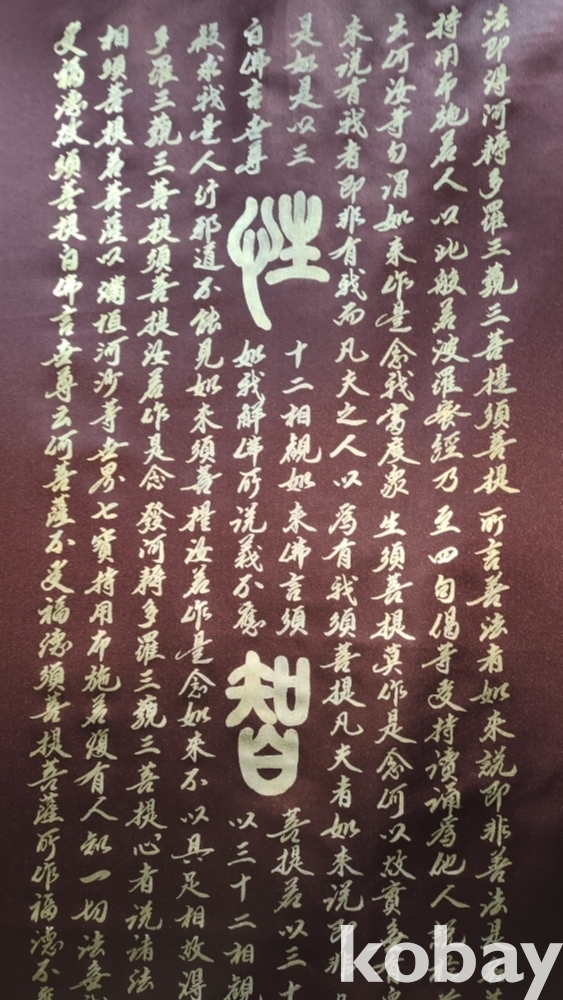 法即得阿耨多羅三藐三菩提須菩提所言善法者如來說即非善法是
持用布施若人以此般若波羅蜜經乃至四句偈等受持讀誦為他人說
云何汝等勿謂如來作是念我當度衆生須菩提莫作是念何以故實無有衆
來説有我者即非有我而凡夫之人以為有我須菩提凡夫者如來說即非
是如是以三
十二相觀如來佛言須
菩提若以三十
白佛言世尊
如我解佛所説義不應
以三十二相觀
性
智
聲求我是人行邪道不能見如来須菩提汝若作是念如来不以具足相故得
多羅三藐三菩提須菩提汝若作是念發阿耨多羅三藐三菩提心者説諸法
相須菩提若菩薩以滿恒河沙等世界七寳持用布施若復有人知一切法無
受福德故須菩提白佛言世尊云何菩薩不受福德須菩提菩薩所作福德不應
kobay